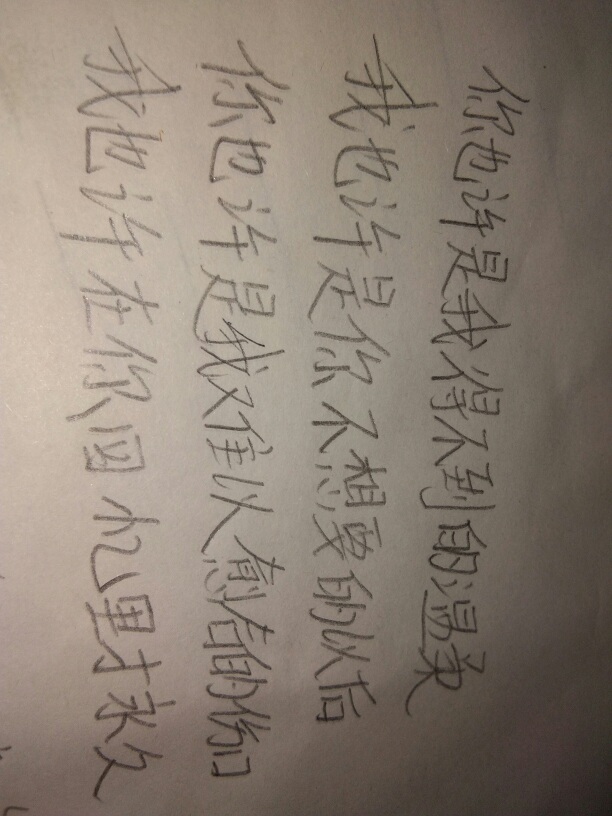 你也许是我得不到的温柔
我也许是你不想要的以后
你也许是我难以愈合的伤口
我也许在你回忆里才永久